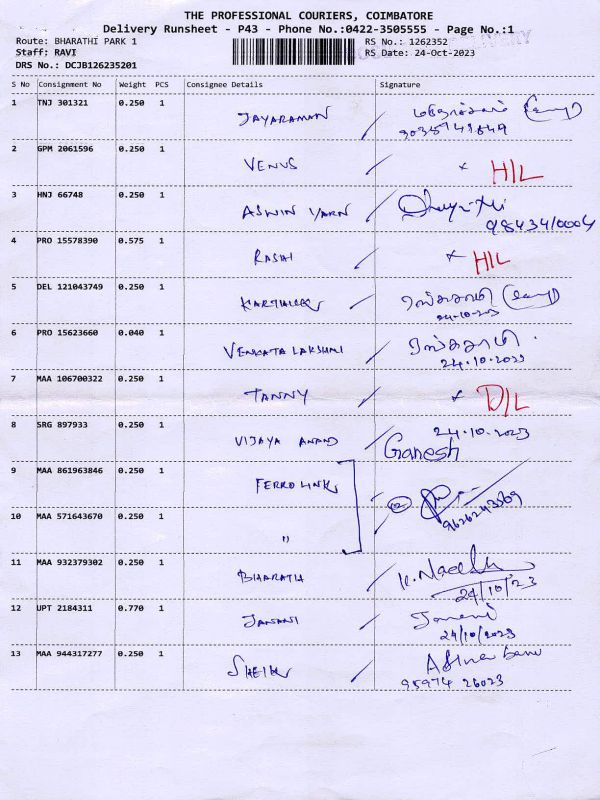 THE PROFESSIONAL COURIERS, COIMBATORE
Delivery Runsheet - P43 - Phone No.:0422-3505555 - Page No.:1
Route: BHARATHI PARK 1 RS No.: 1262352
Staff: RAVI RS Date: 24-Oct-2023
DRS No.: DCJB126235201
S No Consignment No Weight PCS Consignee Details Signature
1 TNJ 301321 0.250 1 JAYARAMAN
2 GPM 2061596 0.250 1 VENUS x H/L
3 HNJ 66748 0.250 1 ASWIN YARN
9843410004
4 PRO 15578390 0.575 1 RASHI x H/L
5 DEL 121043749 0.250 1
24-10-2023
6 PRO 15623660 0.040 1 VENGATA LAKSHMI
24.10.2023
7 MAA 106700322 0.250 1 TANNY x D/L
8 SRG 897933 0.250 1 VIJAYA ANAND 24.10.2023
Ganesh
9 MAA 861963846 0.250 1 FERRO LINKS
9626243569
10 MAA 571643670 0.250 1 "
11 MAA 932379302 0.250 1 BHARATH
24/10/23
12 UPT 2184311 0.770 1 JANANI Janani
24/10/2023
13 MAA 944317277 0.250 1 SHEIK
95974 26023